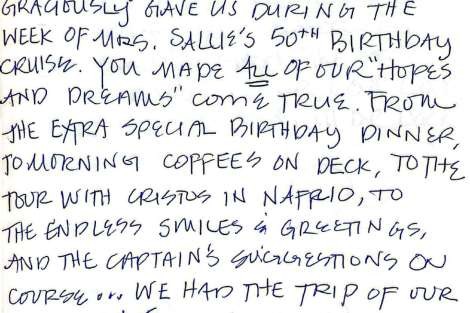 GRACIOUSLY GAVE US DURING THE
WEEK OF MRS. SALLIE'S 50TH BIRTHDAY
CRUISE. YOU MADE ALL OF OUR "HOPES
AND DREAMS" COME TRUE. FROM
THE EXTRA SPECIAL BIRTHDAY DINNER,
TO MORNING COFFEES ON DECK, TO THE
TOUR WITH CRISTOS IN NAFPLIO, TO
THE ENDLESS SMILES & GREETINGS,
AND THE CAPTAIN'S SUGGESTIONS ON
COURSE... WE HAD THE TRIP OF OUR